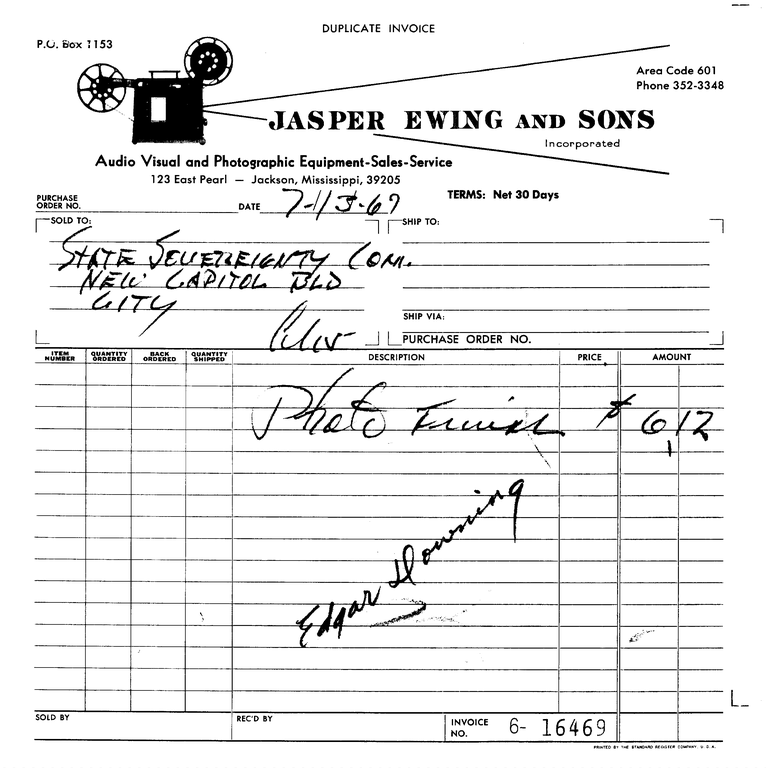 DUPLICATE INVOICE
P.O. Box 1153
Area Code 601
Phone 352-3348
JASPER EWING AND SONS
Incorporated
Audio Visual and Photographic Equipment-Sales-Service
123 East Pearl — Jackson, Mississippi, 39205
TERMS: Net 30 Days
PURCHASE ORDER NO.
DATE 7-13-67
SOLD TO:
STATE SOVEREIGNTY COM.
NEW CAPITOL BLD
CITY
SHIP TO:
SHIP VIA:
PURCHASE ORDER NO.
ITEM NUMBER QUANTITY ORDERED BACK ORDERED QUANTITY SHIPPED DESCRIPTION PRICE AMOUNT
Photo Finish $ 6,12
Edgar Downing
SOLD BY
REC'D BY
INVOICE NO. 6- 16469
PRINTED BY THE STANDARD REGISTER COMPANY, U.S.A.